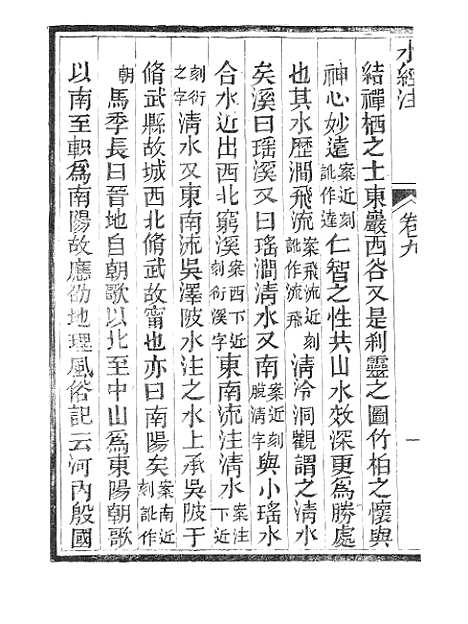 水經注
卷九
一
結禪栖之士東巖西谷又是刹靈之圖竹柏之懷與
神心妙遠案近刻訛作達仁智之性共山水效深更爲勝處
也其水歷澗飛流案飛流近刻訛作流飛淸泠洞觀謂之淸水
矣溪曰瑤溪又曰瑤澗淸水又南案近刻脫淸字與小瑤水
合水近出西北窮溪案西下近刻衍溪字東南流注淸水案注下近
刻衍之字淸水又東南流吳澤陂水注之水上承吳陂于
脩武縣故城西北脩武故甯也亦曰南陽矣案南近刻訛作
朝馬季長曰晉地自朝歌以北至中山爲東陽朝歌
以南至軹爲南陽故應劭地理風俗記云河內殷國